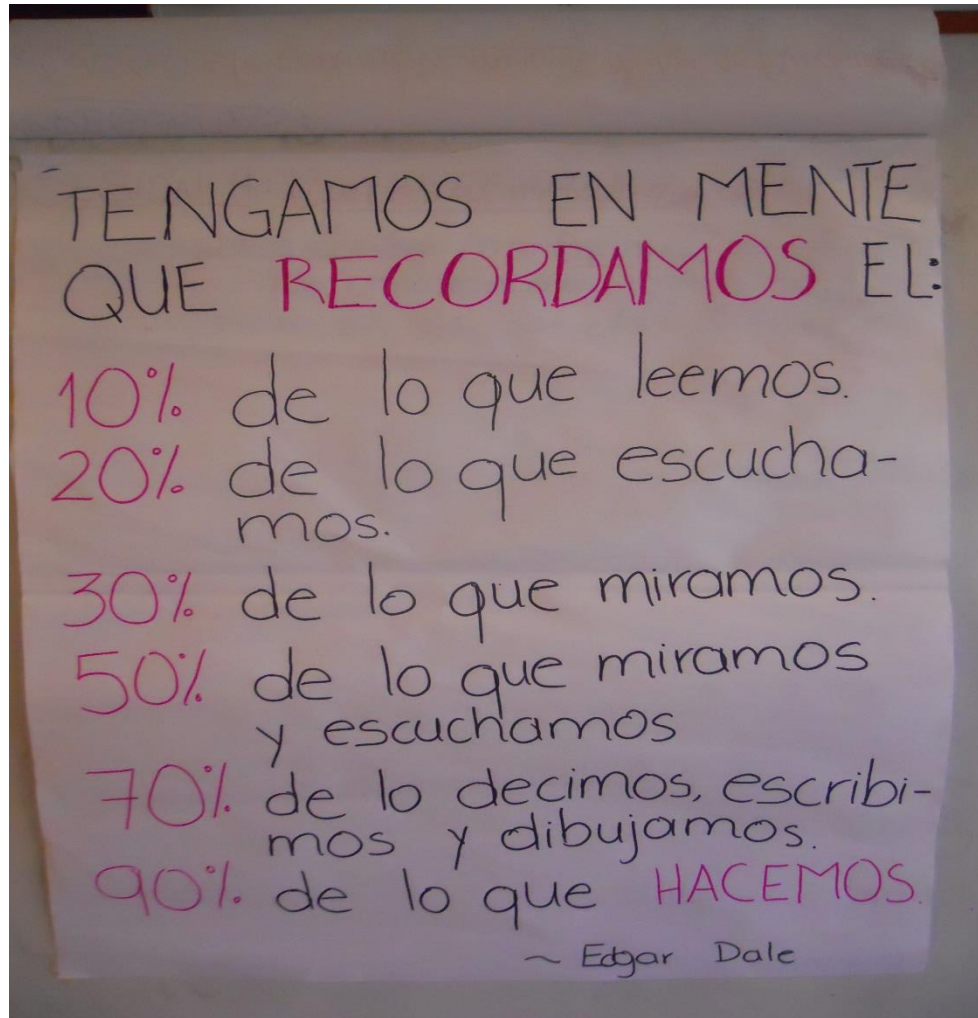 TENGAMOS EN MENTE
QUE RECORDAMOS EL:
10% de lo que leemos.
20% de lo que escucha-
mos.
30% de lo que miramos.
50% de lo que miramos
y escuchamos
70% de lo decimos, escribi-
mos y dibujamos.
90% de lo que HACEMOS.
~ Edgar Dale